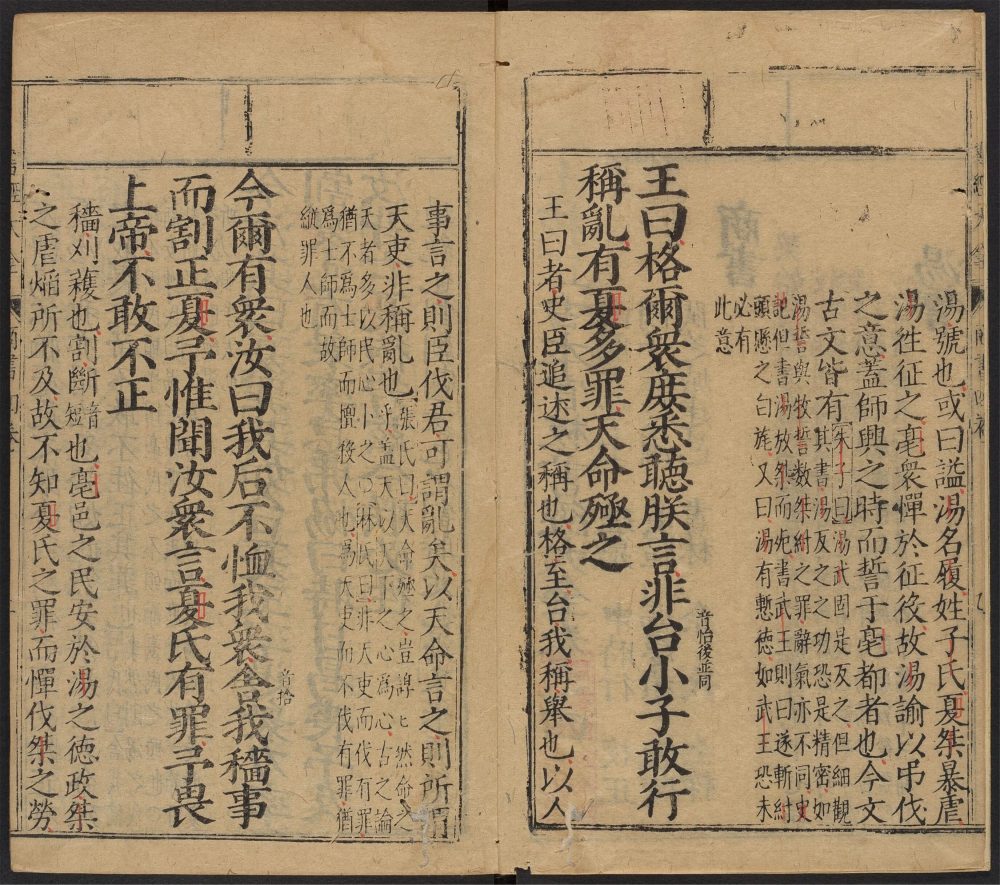 湯號也或曰謚湯名履姓子氏夏桀暴虐
湯徃征之亳衆憚於征役故湯諭以弔伐
之意蓋師興之時而誓于亳都者也今文
古文皆有朱子曰湯武固是反之但細觀
其書湯反之之功恐是精密如
湯誓與牧誓數桀紂之罪辭氣亦不同史
記但書湯放桀而死書武王則曰遂斬紂
頭懸之白旄又曰湯有慙德如武王恐未
必有
此意
王曰格爾衆庶悉聽朕言非台小子敢行
音怡後並同
稱亂有夏多罪天命殛之
王曰者史臣追述之稱也格至台我稱舉也以人
事言之則臣伐君可謂亂矣以天命言之則所謂
天吏非稱亂也張氏曰天命殛之豈諄〻然命之
乎蓋天以天下之心爲心古之論
天者多以民心卜之○林氏曰非天吏而伐有罪
猶不爲士師而擅殺人也爲天吏而不伐有罪猶
爲士師而故
縱罪人也
今爾有衆汝曰我后不恤我衆舍我穡事
音拾
而割正夏予惟聞汝衆言夏氏有罪予畏
上帝不敢不正
穡刈穫也割斷音短也亳邑之民安於湯之德政桀
之虐焰所不及故不知夏氏之罪而憚伐桀之勞